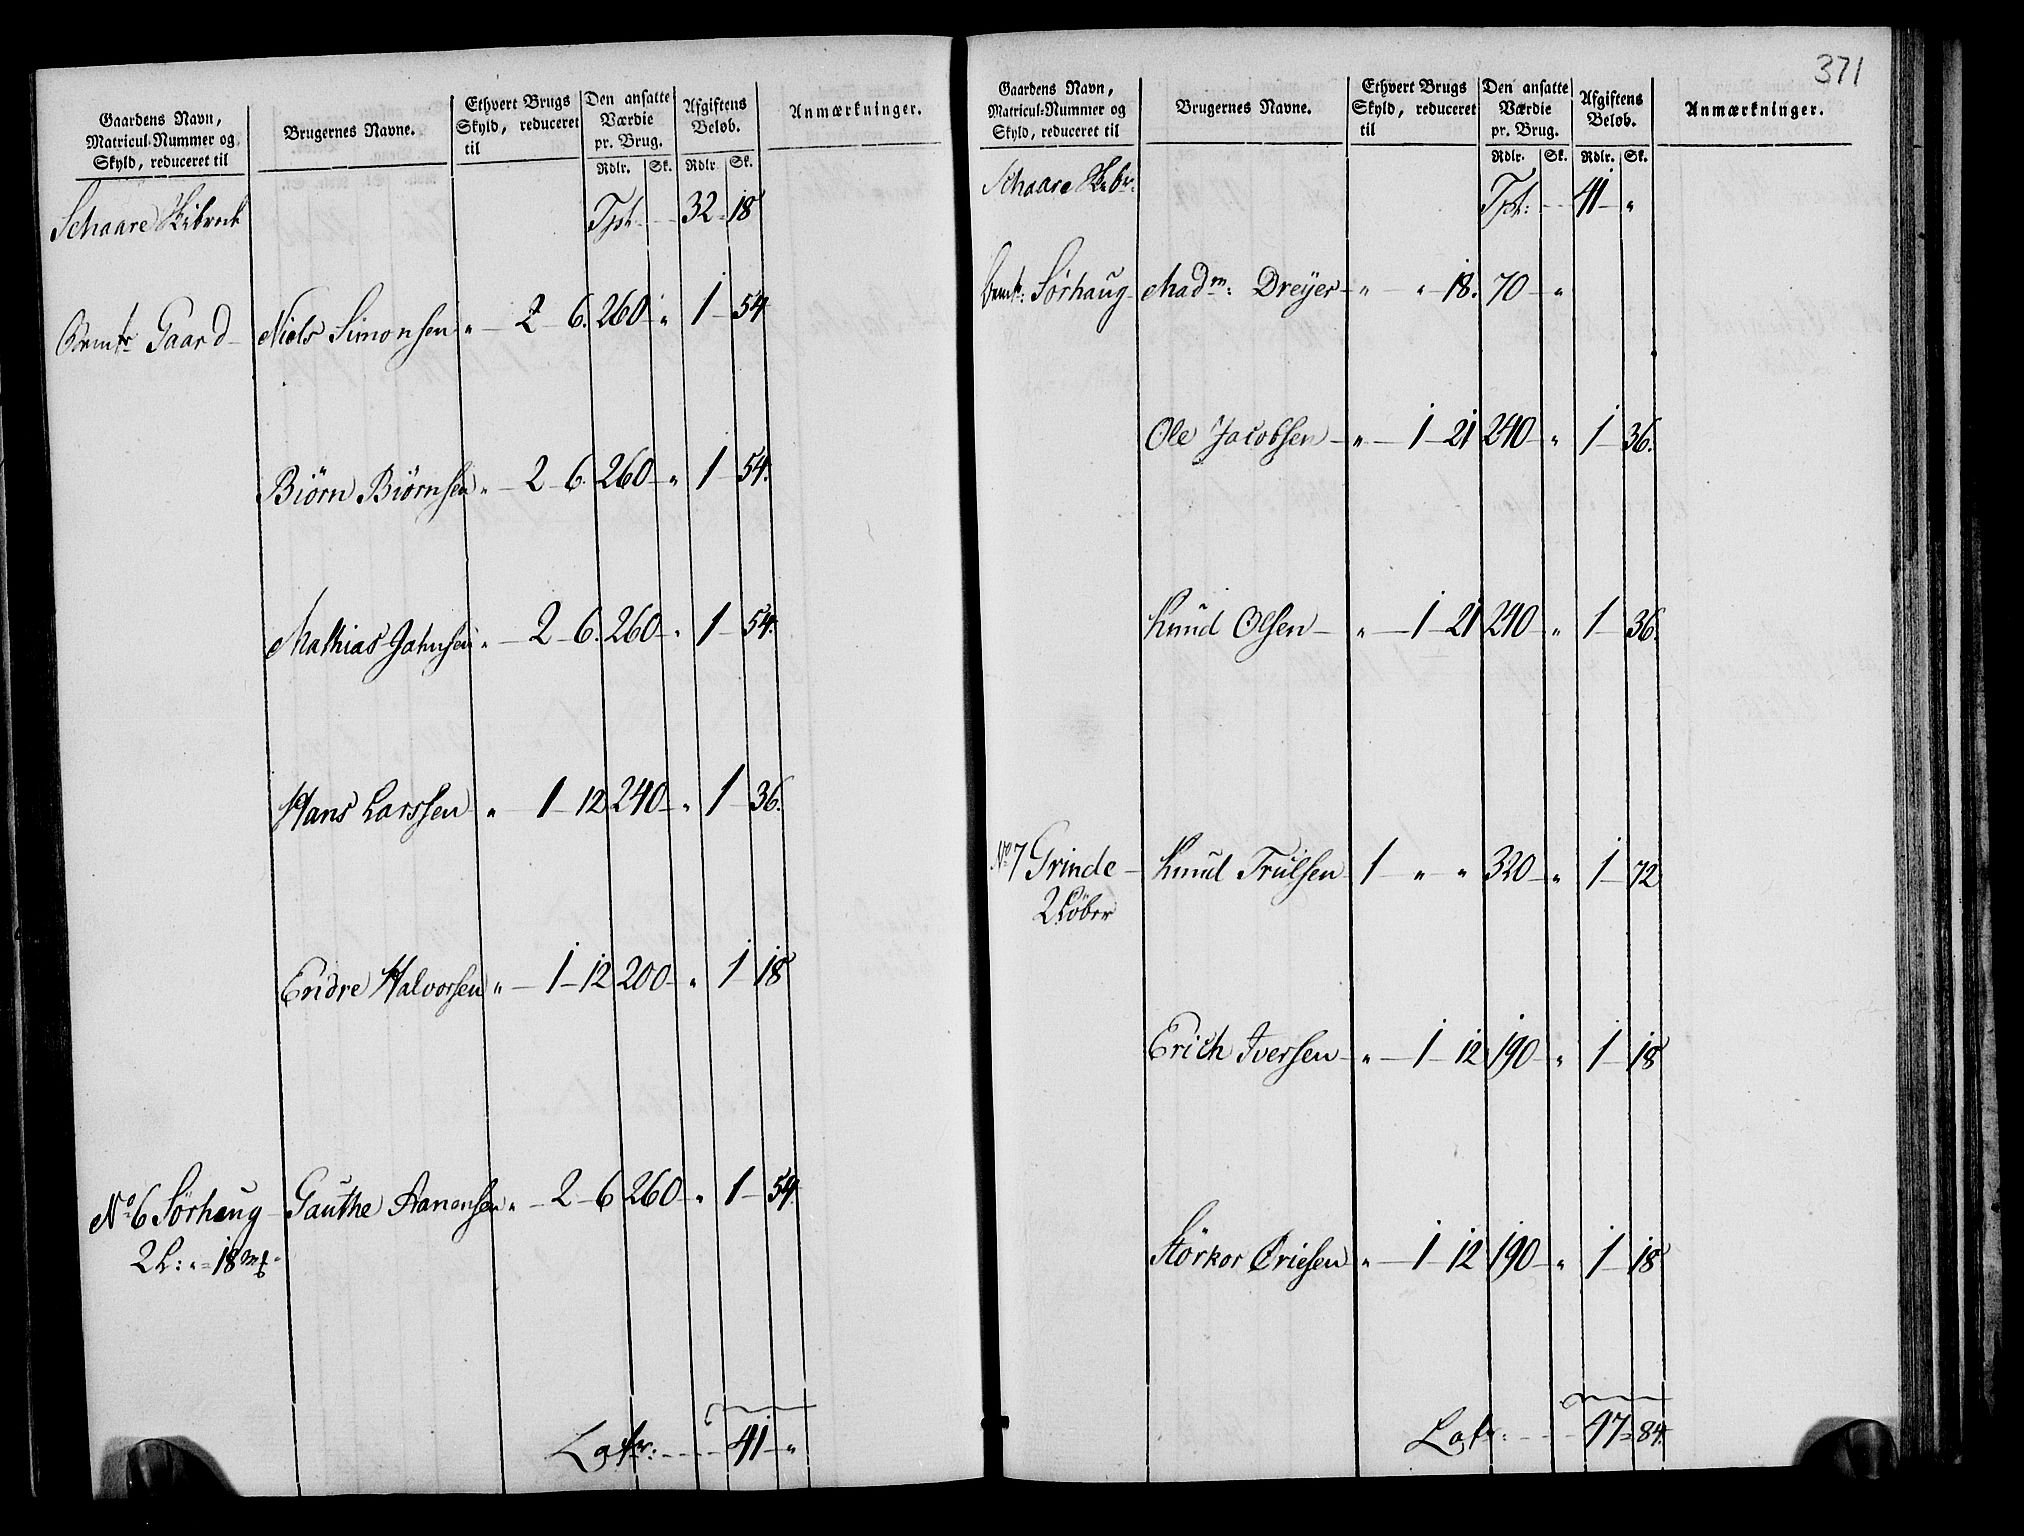 Gaardens Navn, Matricul-Nummer og Skyld, reduceret til | Brugernes Navne. | Ethvert Brugs Skyld, reduceret til | Den ansatte Værdie pr. Brug. Rdlr. Sk. | Afgiftens Beløb. Rdlr. Sk. | Anmærkninger.
Schaare Skibrede Tpt. 32 18
Bemte Gaard Niels Simonsen " 2 6. 260 " 1 54
Biørn Biørnsen " 2 6. 260 " 1 54.
Mathias Jahnsen " 2 6. 260 " 1 54.
Hans Larssen " 1 12 240 " 1 36.
Endre Halvorsen " 1 12 200 " 1 18
No 6 Sørhaug Gauthe Aanensen " 2 6 260 " 1 54.
2 L: " 18 mk
Latr: 41 "
371
Gaardens Navn, Matricul-Nummer og Skyld, reduceret til | Brugernes Navne. | Ethvert Brugs Skyld, reduceret til | Den ansatte Værdie pr. Brug. Rdlr. Sk. | Afgiftens Beløb. Rdlr. Sk. | Anmærkninger.
Schaare Skbr: Tpt: 41 "
bemte: Sørhaug Madm: Dreyer " " 18. 70 "
Ole Jacobsen " 1 21 240 " 1 36.
Knud Olsen " 1 21 240 " 1 36.
No 7 Grinde Knud Trulsen 1 " " 320 " 1 72
2 Løber
Erich Iversen " 1 12 190 " 1 18
Størkor Eriesen " 1 12 190 " 1 18
Latr: 47 84.